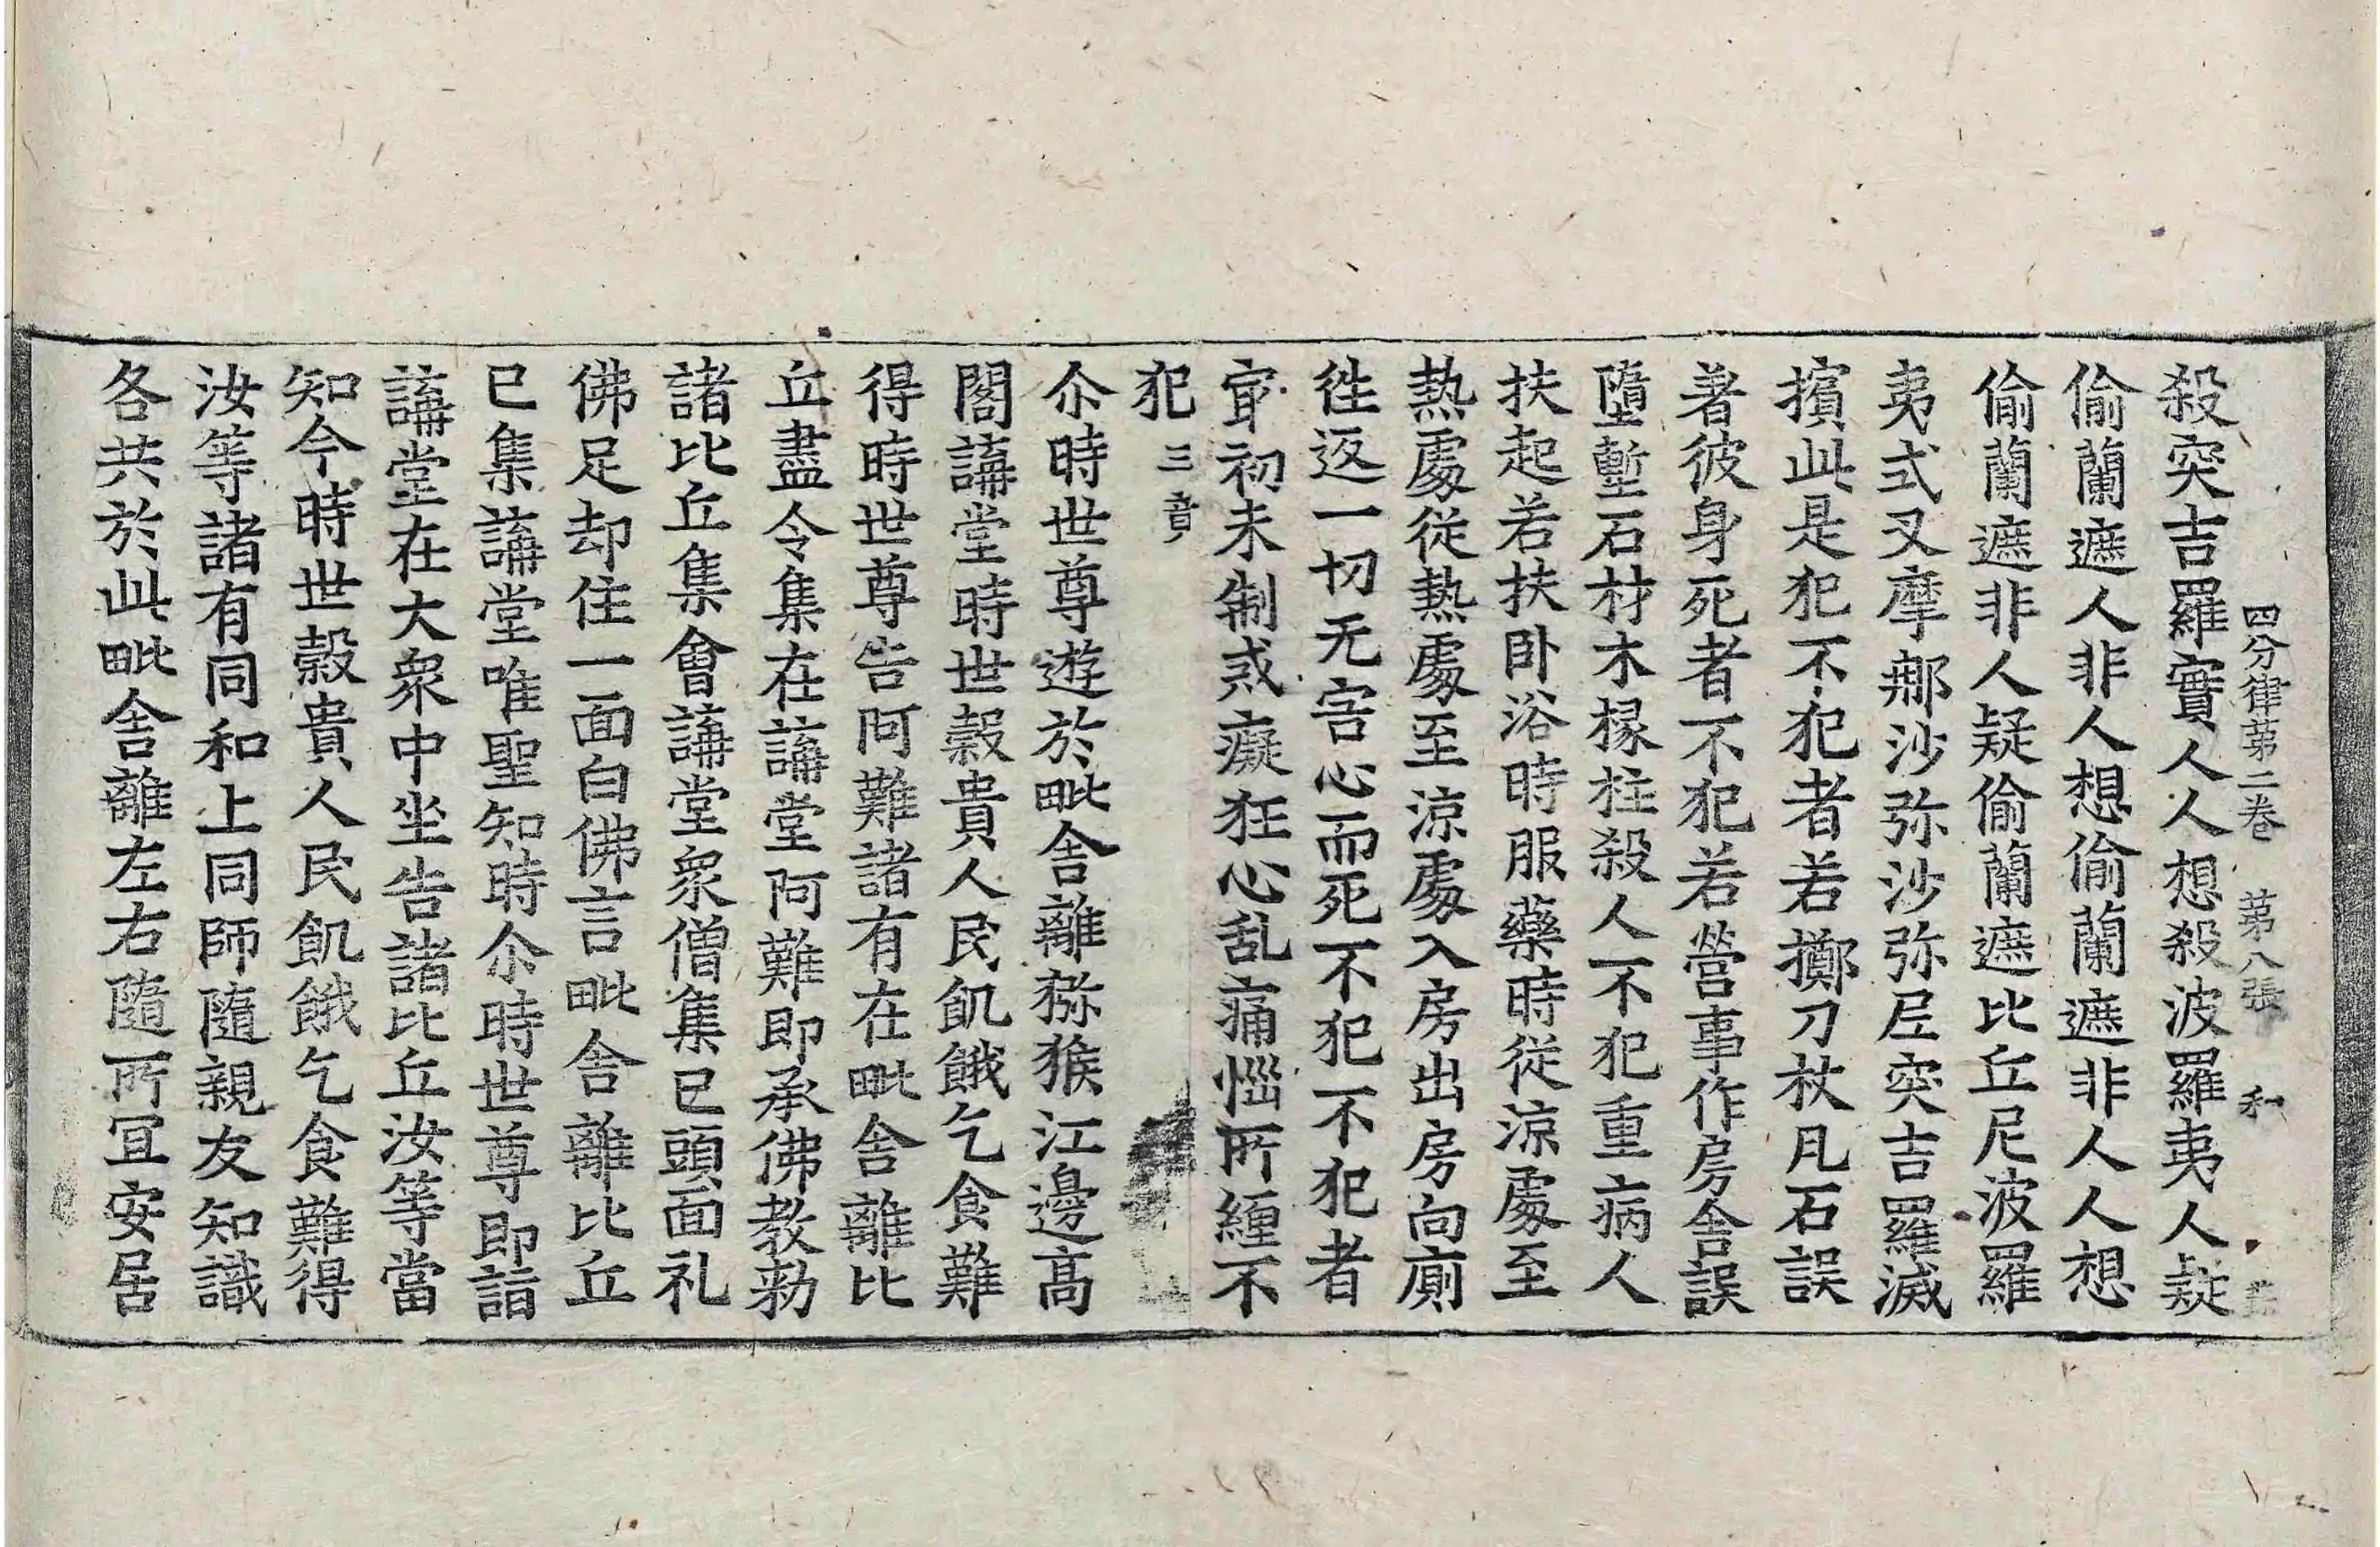 四分律第二卷 第八張 和
殺突吉羅實人人想殺波羅夷人疑
偷蘭遮人非人想偷蘭遮非人人想
偷蘭遮非人疑偷蘭遮比丘尼波羅
夷式叉摩那沙弥沙弥尼突吉羅滅
擯此是犯不犯者若擲刀杖瓦石誤
著彼身死者不犯若營事作房舍誤
墮墼石材木椽柱殺人不犯重病人
扶起若扶卧浴時服藥時從涼處至
熱處從熱處至涼處入房出房向廁
往返一切无害心而死不犯不犯者
冣初未制或癡狂心乱痛惱所纏不
犯 三竟
尒時世尊遊於毗舍離獼猴江邊高
閣講堂時世穀貴人民飢餓乞食難
得時世尊告阿難諸有在毗舍離比
丘盡令集在講堂阿難即承佛教勑
諸比丘集會講堂衆僧集已頭面礼
佛足却住一面白佛言毗舍離比丘
已集講堂唯聖知時尒時世尊即詣
講堂在大衆中坐告諸比丘汝等當
知今時世穀貴人民飢餓乞食難得
汝等諸有同和上同師隨親友知識
各共於此毗舍離左右隨所冝安居